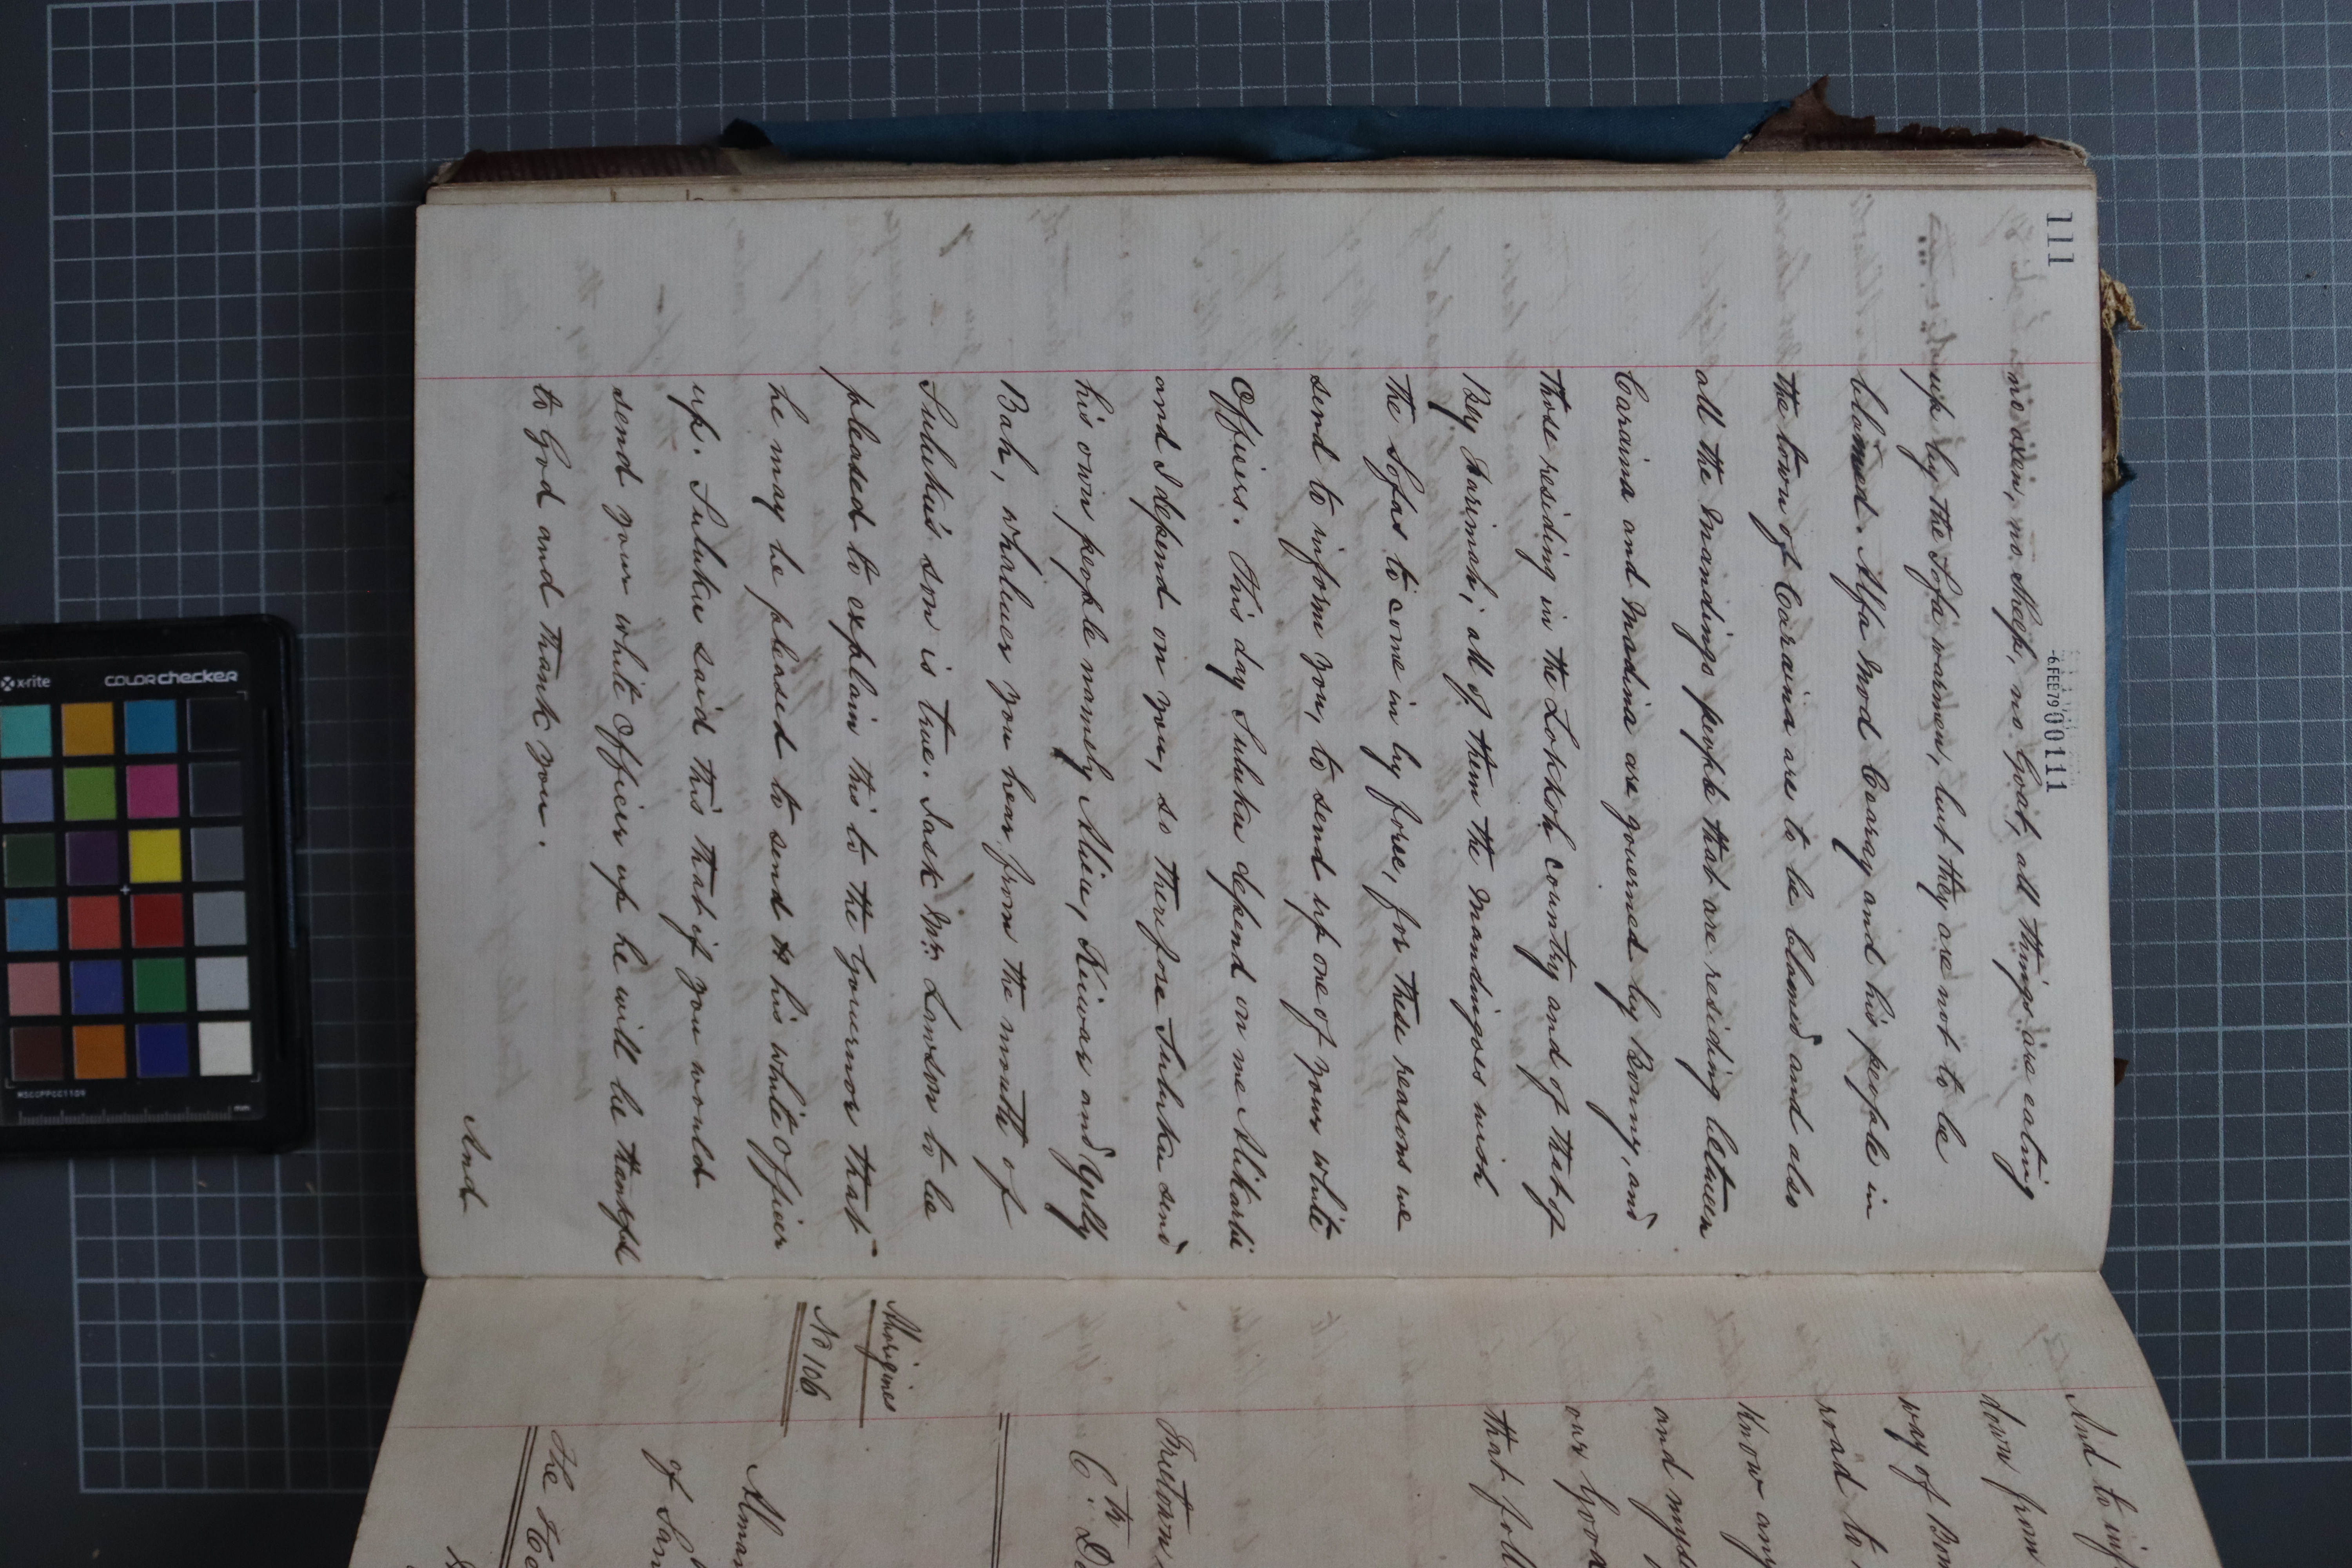 111
-6 FEB 79 00111
no oxen, no sheep, no Goat, all things are eating
up by the Sofa warmen, but they are not to be
blamed. Alfa Mod Cearay and his people in
the town of Caraina are to be blamed and also
all the Mandings people that are residing between
Caraina and Madina are governed by Bomy, and
those residing in the Lokkoh country and of that of
Bey Farimah; all of them the Mandingoes wish
the Sofas to come in by force, for these reasons we
send to inform you, to send up one of your white
Officers. This day Suluku depend on me Alikarli
and I depend on you, so therefore Suluku send
his own people namely Alieu, Keiwas and Gylly
Bah, whatever you hear from the mouth of
Suluku's son is true. I ask Mr. Lawson to be
pleased to explain this to the Governor that
he may be pleased to send his white Officer
up. Suluku said this that if you would
send your white Officer up he will be thankful
to God and thank you.
And
And to inf
down from
way of Bom
road to
know any
and mys
our Good
that foll
Freetown
6th De
Aborigines
No 106
Almam
of San
The Ho